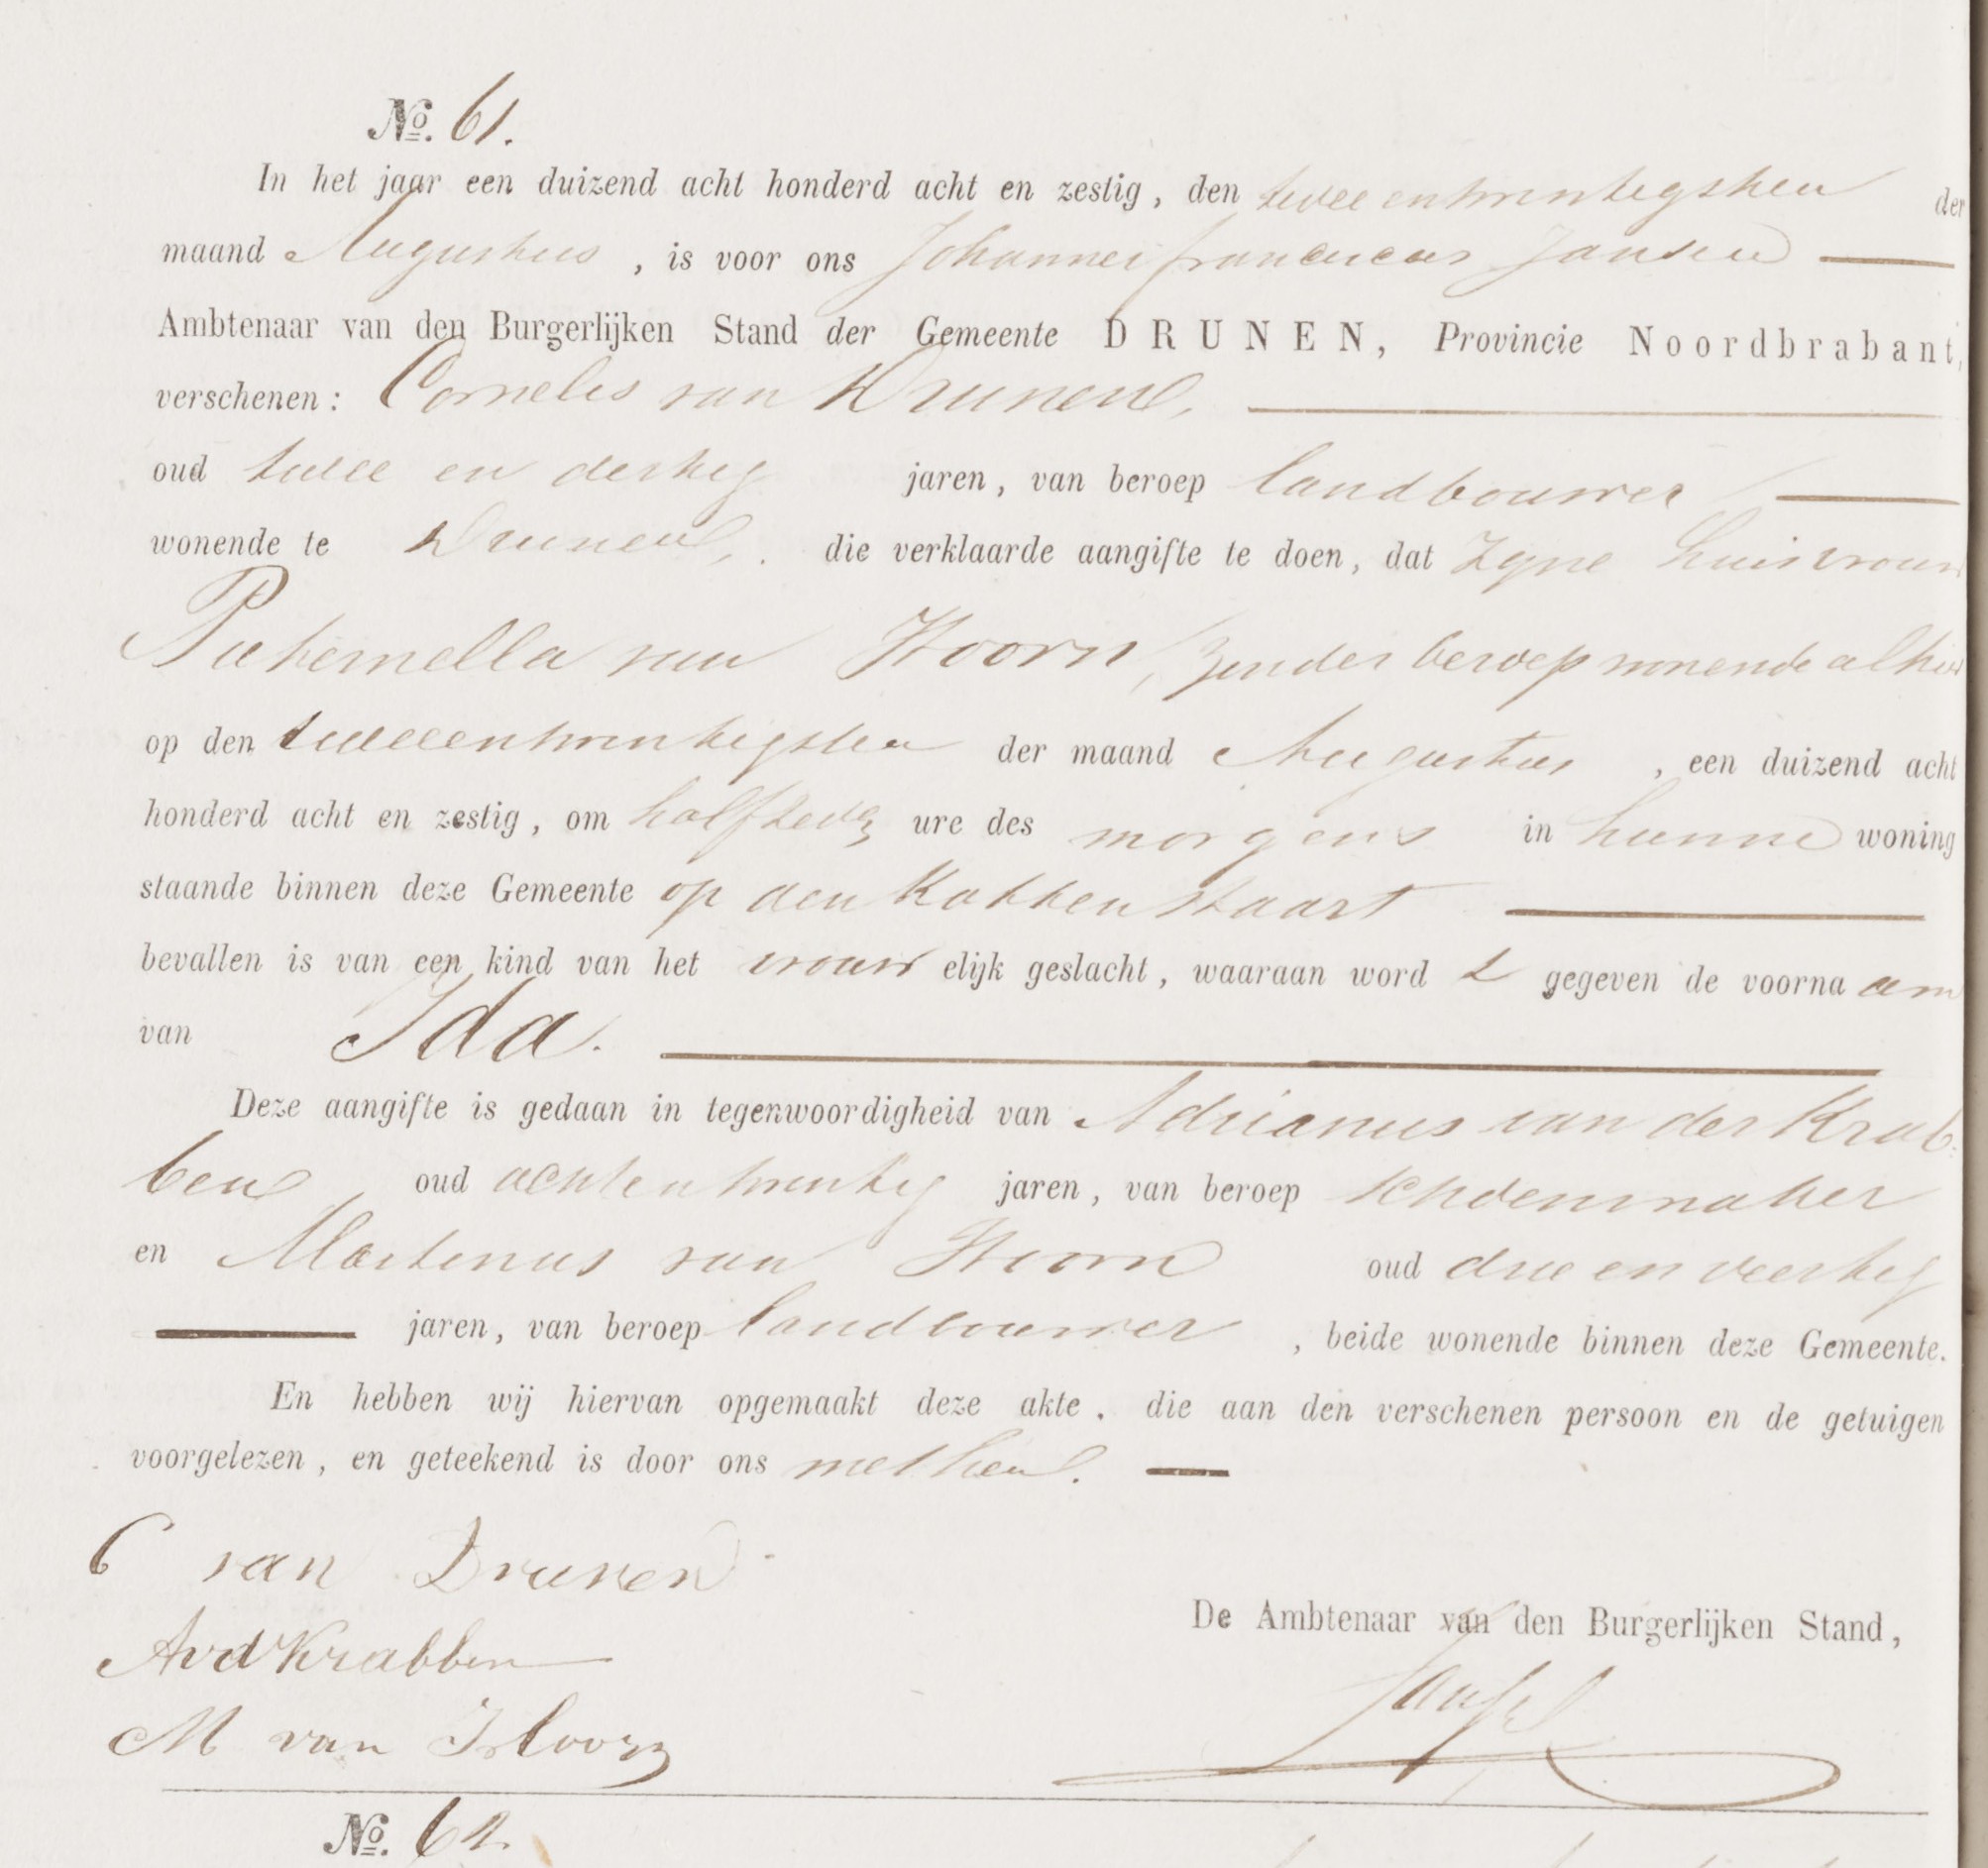 No. 61.
In het jaar een duizend acht honderd acht en zestig, den twee en twintigsten der
maand Augustus, is voor ons Johannes franciscus Jansen
Ambtenaar van den Burgerlijken Stand der Gemeente DRUNEN, Provincie Noordbrabant,
verschenen: Cornelis van Drunen,
oud twee en dertig jaren, van beroep landbouwer
wonende te Drunen, die verklaarde aangifte te doen, dat zyne huisvrouw
Pieternella van Hoorn, zonder beroep wonende alhier
op den tweeentwintigsten der maand Augustus, een duizend acht
honderd acht en zestig, om half ure des morgens in hunne woning
staande binnen deze Gemeente op den Kattenstaart
bevallen is van een kind van het vrouwelijk geslacht, waaraan word t gegeven de voornaam
van Ida.
Deze aangifte is gedaan in tegenwoordigheid van Adrianus van der Krab-
ben oud achtentwintig jaren, van beroep schoenmaker
en Martinus van Hoorn oud drie en veertig
jaren, van beroep landbouwer, beide wonende binnen deze Gemeente.
En hebben wij hiervan opgemaakt deze akte. die aan den verschenen persoon en de getuigen
voorgelezen, en geteekend is door ons met hen.
C van Drunen
AvdKrabben
De Ambtenaar van den Burgerlijken Stand,
M van Hoorn
Jansen
No. 62.